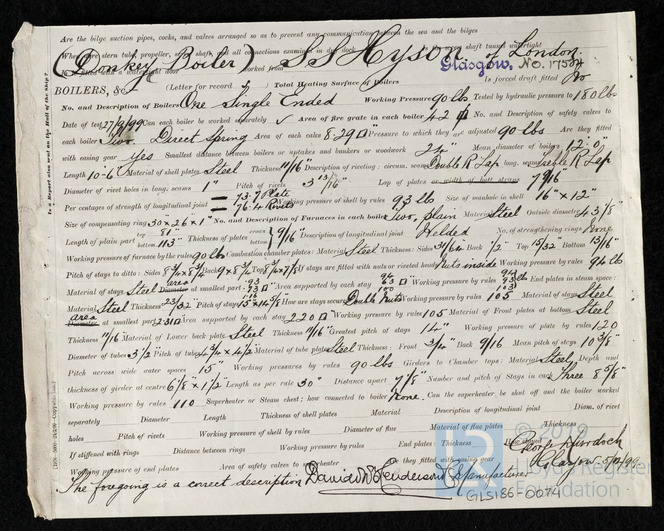 Are the bilge suction pipes, cocks, and valves arranged so as to prevent any communication between the sea and the bilges
(Donkey Boiler) SS Hyson of London
Glasgow. No. 17507
BOILERS, &c. (Letter for record) Total Heating Surface of Boilers Is forced draft fitted No
No. and Description of Boilers One Single Ended Working Pressure 90 lbs Tested by hydraulic pressure to 180 lbs
Date of test 27/9/99 Can each boiler be worked separately Area of fire grate in each boiler 42 No. and Description of safety valves to
each boiler Two. Direct Spring Area of each valve 8.29 Pressure to which they are adjusted 90 lbs Are they fitted
with easing gear Yes Smallest distance between boilers or uptakes and bunkers or woodwork 24" Mean diameter of boilers 12.0
Length 10-6 Material of shell plates Steel Thickness 11/16" Description of riveting: circum. seams Double R Lap long. seams Treble R Lap
Diameter of rivet holes in long. seams 1" Pitch of rivets 3 13/16" Lap of plates or width of butt straps 7 9/16"
Per centages of strength of longitudinal joint 73.7 Plate 76.4 Rivets Working pressure of shell by rules 93 lb Size of manhole in shell 16" x 12"
Size of compensating ring 30 x 26 x 1" No. and Description of Furnaces in each boiler Two, plain Material Steel Outside diameter 43 7/8"
Length of plain part top 81" bottom 113" Thickness of plates crown bottom 9/16" Description of longitudinal joint Welded No. of strengthening rings None
Working pressure of furnace by the rules 90 lb Combustion chamber plates: Material Steel Thickness: Sides 31/64 Back 1/2" Top 15/32 Bottom 13/16"
Pitch of stays to ditto: Sides Back Top If stays are fitted with nuts or riveted heads Nuts inside Working pressure by rules 94 lb
Material of stays Steel area at smallest part Area supported by each stay Working pressure by rules End plates in steam space:
Material Steel Thickness 23/32" Pitch of stays How are stays secured Double Nuts Working pressure by rules 105 Material of stays Steel
area at smallest part Area supported by each stay 220 Working pressure by rules 105 Material of Front plates at bottom Steel
Thickness 11/16 Material of Lower back plate Steel Thickness 11/16 Greatest pitch of stays 14" Working pressure of plate by rules 120
Diameter of tubes 3 1/2 Pitch of tubes 4 3/4 x 4 1/2 Material of tube plates Steel Thickness: Front 3/4" Back 9/16 Mean pitch of stays 10 3/8"
Pitch across wide water spaces 15" Working pressures by rules 90 lbs Girders to Chamber tops: Material Steel Depth and
thickness of girder at centre 6 7/8" x 1 1/2 Length as per rule 30" Distance apart 7 7/8" Number and pitch of Stays in each Three 8 5/8"
Working pressure by rules 110 Superheater or Steam chest; how connected to boiler None. Can the superheater be shut off and the boiler worked
separately Diameter Length Thickness of shell plates Material Description of longitudinal joint Diam. of rivet
holes Pitch of rivets Working pressure of shell by rules Diameter of flue Material of flue plates Thickness
If stiffened with rings Distance between rings Working pressure by rules End plates: Thickness How stayed
Working pressure of end plates Area of safety valves to superheater Are they fitted with easing gear
Geo. Murdoch
Glasgow
The foregoing is a correct description David W Henderson & Co Manufacturer
© 2019 Lloyd's Register Foundation
GLS186-0074